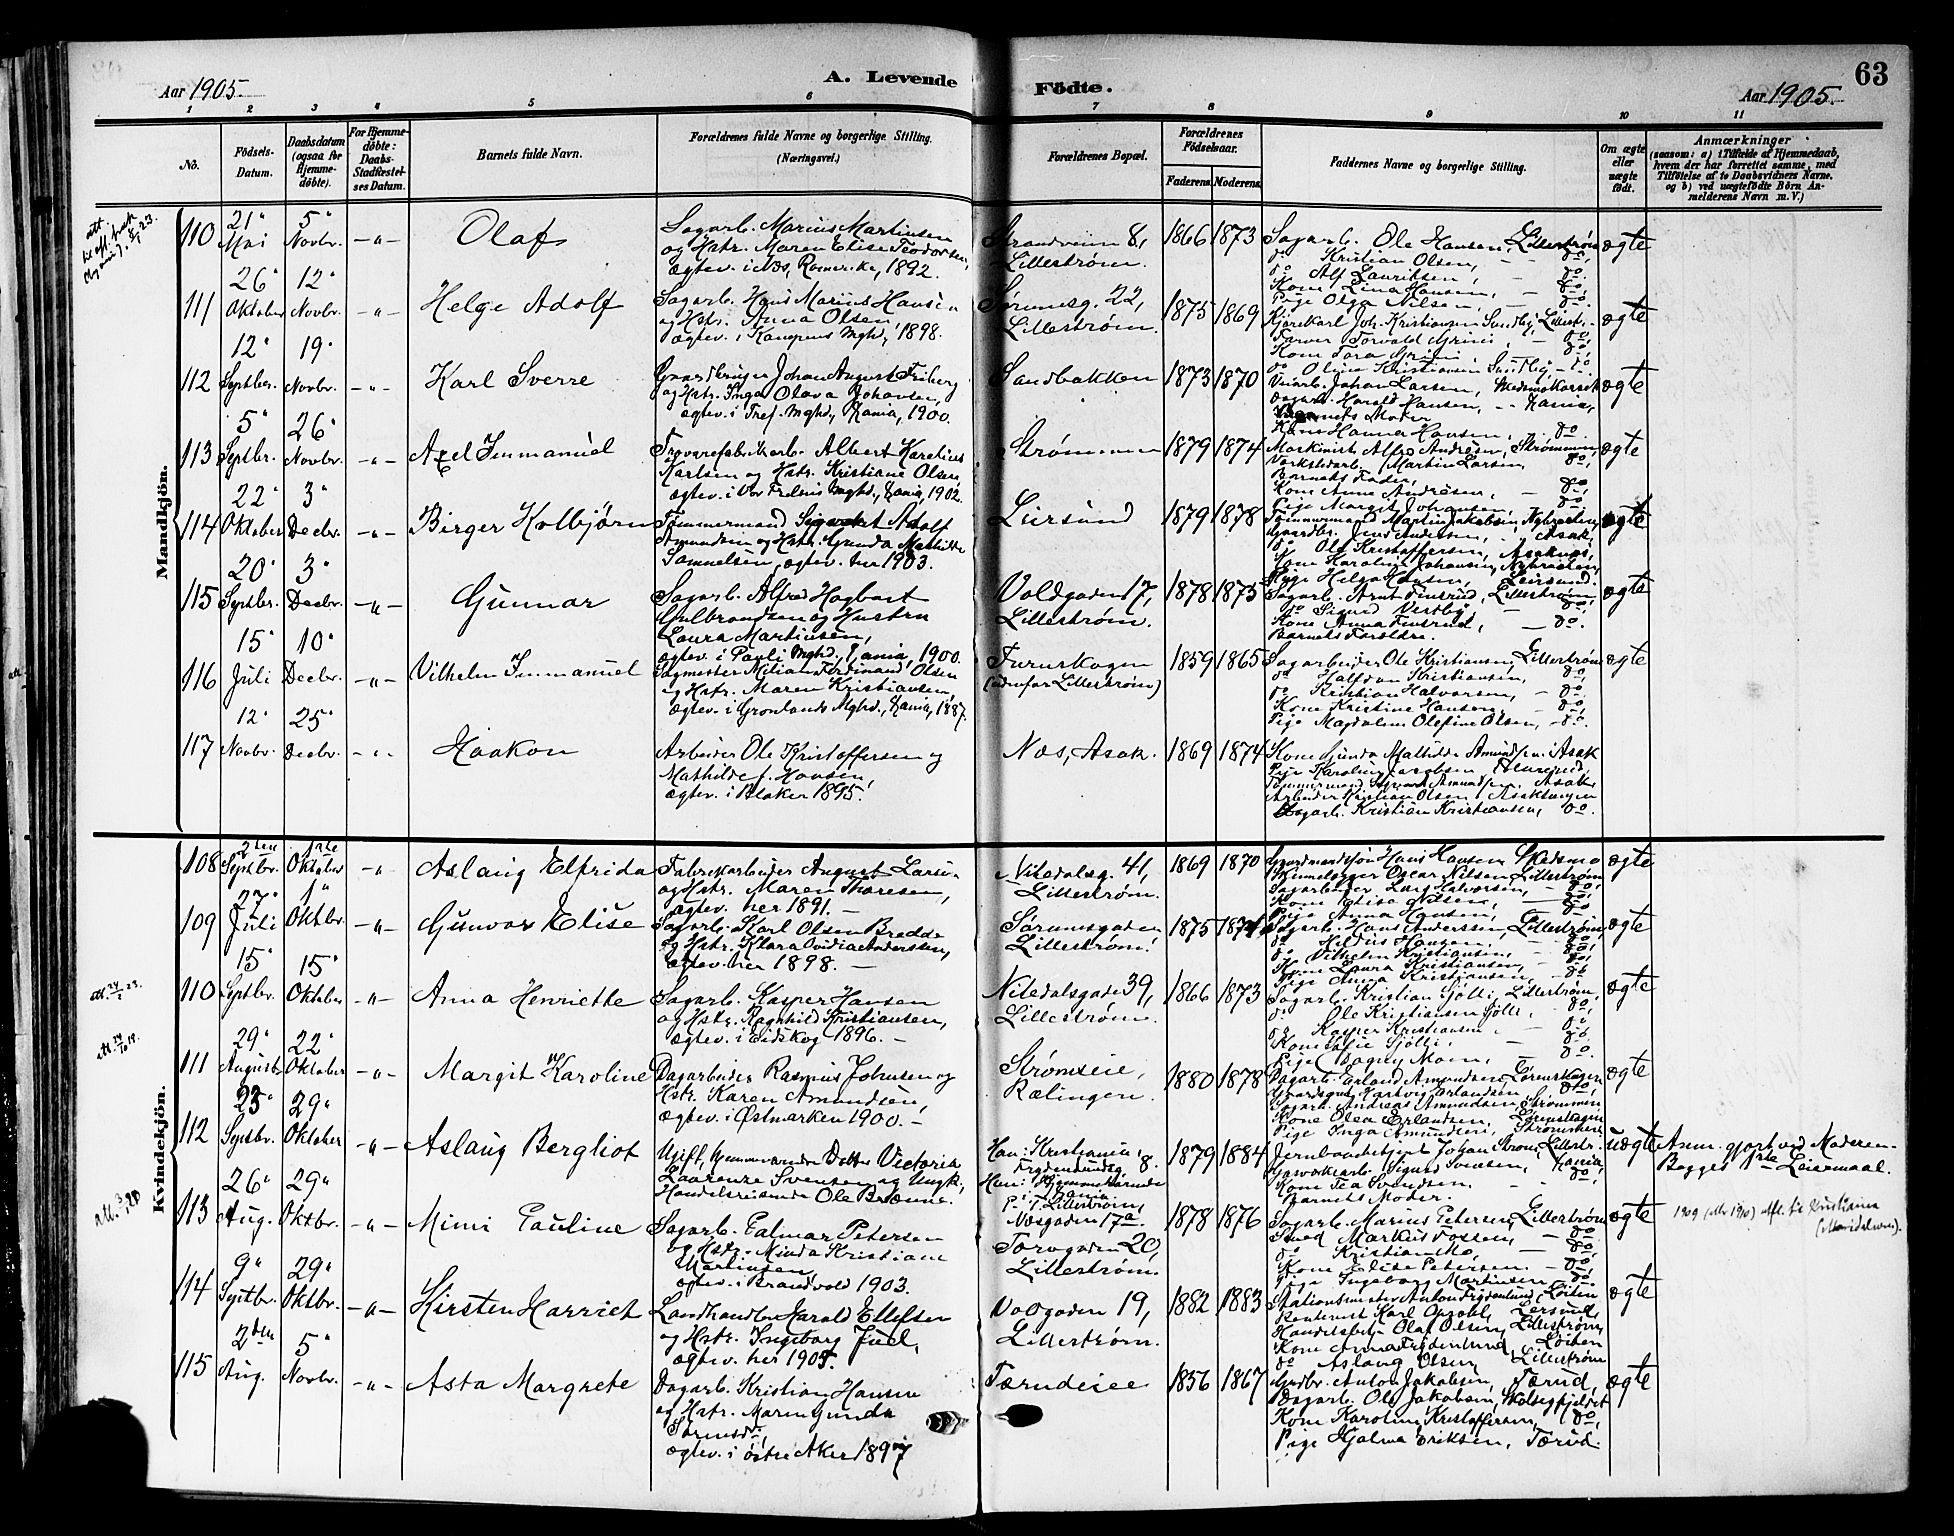 63
A. Levende Födte.
Aar 1905.
Aar 1905.
1 2 3 4 5 6 7 8 9 10 11
No.
Födsels-Datum.
Daabsdatum (ogsaa for Hjemme-döbte).
For Hjemme-döbte: Daabs-Stadfæstel-ses Datum.
Barnets fulde Navn.
Forældrenes fulde Navne og borgerlige Stilling.
(Næringsvei.)
Forældrenes Bopæl.
Forældrenes Födselsaar.
Faderens. Moderens.
Faddernes Navne og borgerlige Stilling.
Om ægte eller uægte födt.
Anmærkninger
(saasom: a) i Tilfælde af Hjemmedaab,
hvem der har forrettet samme, med
Tilföielse af to Daabsvidners Navne.
og b) ved uægtefödte Börn An-
melderens Navn m. V.)
Mandkjön.
110 21" Mai 5" Novbr. -"- Olaf
Sagarb. Marius Martinsen
og Hstr. Maren Elise Todorsen,
ægtev. i Nes, Romerike, 1892.
Strandveien 8,
Lillestrøm.
1866 1873
Sagarb. Ole Hansen, Lillestrøm
do Kristian Olsen, - do.
do Alf Lauritsen, do.
Kone Lina Hansen, - do.
Pige Olga Nilsen, - do.
ægte
111 26" Oktober 12" Novbr. -"- Helge Adolf
Sagarb. Hans Marius Hansen
og Hstr. Anna Olsen,
ægtev. i Kampens Mghd, 1898.
Sørumsg. 22,
Lillestrøm.
1875 1869
Kjørekarl Joh. Kristiansen Sundby, Lillestr.
Farver Torvald Grini, - do,
Kone Tora Grini, - do,
do Oline Kristiansen Sundby, - do.
ægte
112 12" Septber. 19" Novbr. -"- Karl Sverre
Gaardbruger Johan August Friberg
og Hstr. Inga Olava Johansen,
ægtev. i Tref. Mghd, Kania, 1900.
Sandbakken
1873 1870
Veiarb. Johan Larsen, Skedsmokorset
Dagarb. Harald Hansen, - Kania,
Barnets Moder
Kone Hanna Hansen, do.
ægte
113 5" Septbr. 26" Novbr. -"- Axel Immanuel
Trævarefabrikarb. Albert Karelius
Karlsen og Hstr. Kristiane Olsen,
ægtev. i Vor Frelsers Mghd, Kania, 1902.
Strømmen
1879 1874
Maskinist Alfred Andrésen, Strømmen
Verkstedarb. Martin Larsen, do,
Barnets Fader,
Kone Anna Andrésen, - do.
Pige Margit Johansen, do.
ægte
114 22" Oktober 3" Decbr. -"- Birger Kolbjørn
Tømmermand Sigvart Adolf
Amundsen og Hstr. Gunda Mathilde
Samuelsen, ægtev. her 1903.
Leirsund
1879 1878
Tømmermand Martin Jakobsen,
Gaardbr. Jens Andersen, - Asak,
do Ole Kristoffersen,
Kone Karoline Johansen,
Pige Helga Hansen, Leirsund.
ægte
115 20" Septbr. 3" Decbr. -"- Gunnar
Sagarb. Alfred Hagbart
Gulbrandsen og Hustru
Laura Martinsen,
ægtev. i Pauli Mghd. Kania, 1900.
Voldgaden 17,
Lillestrøm.
1878 1875
Sagarb. Arnt Finsrud, Lillestrøm,
do Sigurd Vestby, - do.
Kone Anna Finsrud, - do.
Barnets Forældre.
ægte
116 15" Juli 10" Decbr. -"- Vilhelm Immanuel
Sagmester Nilian Ferdinand Olsen
og Hstr. Maren Kristiansen,
ægtev. i Grønlands Mghd., Kania, 1887.
Furuskogen
(udenfor Lillestrøm)
1859 1865
Sagarbeider Ole Kristiansen, Lillestrøm
do Halfdan Kristiansen, do,
do Kristian Halvorsen, - do.
Kone Kristine Hansen, - do.
Pige Magdalene Olefine Olsen, - do.
ægte
117 12" Novbr. 25" Decbr. -"- Haakon
Arbeider Ole Kristoffersen og
Mathilde f. Hansen,
ægtev. i Blaker 1895.
Næs, Asak.
1869 1874
Kone Gunda Mathilde Amundsen, Asak
Pige Karoline Jacobsen
Tømmermand Sigvart Amundsen, Asak,
Arbeider Kristian Olsen, Asakengen
Dagarb. Kristian Kristiansen, do.
Kvindekjön.
108 2den Septbr. 1ste Oktober -"- Aslaug Elfrida
Fabrikarbeider August Larsen
og Hstr. Maren Thoresen,
ægtev. her 1891. -
Nitedalsg. 41,
Lillestrøm.
1869 1870
Gaardmandssøn Hans Hansen, Skedsmo
Oscar Nilsen, Lillestrøm
Sagarbeider Lars Halvorsen, - do.
Kone Elise Nilsen, do,
Pige Anna Hansen, do
ægte
109 27" Juli 1" Oktbr. -"- Gunvor Elise
Sagarb. Karl Olsen Bredde
og Hstr. Klara Ovidia Anderssen,
ægtev. her 1898. -
Sørumsgaden
Lillestrøm.
1875 1874
Sagarb. Hans Anderssen, Lillestrøm,
do Hansen, - do.
do Vilhelm Kristiansen, do,
Kone Laura Kristiansen, - do
Pige Anna Kristiansen, - do
ægte
110 15" Septbr. 15" Oktober -"- Anna Henriette
Sagarb. Kasper Hansen
og Hstr. Ragnhild Kristiansen,
ægtev. i Eidskog 1896. -
Nitedalsgade 39,
Lillestrøm.
1866 1873
Sagarb. Kristian Sjølli, Lillestrøm,
do Ole Kristiansen Sjølli, do.
do Kasper Kristiansen, do.
Kone Sjølli, - do.
Pige Dagny Moen, do.
ægte
111 29" August 22" Oktober -"- Margit Karoline
Dagarbeider Rasmus Johnsen og
Hstr. Karen Amundsen,
ægtev. i Østmarken 1900. -
Strømseie,
Rælingen.
1880 1878
Dagarb. Erland Amundsen, Lørenskogen
Gaardsgut Hartvig Erlandsen, do,
Sagarb. Andreas Amundsen, Strømmen
Kone Olea Erlandsen, Lørenskogen
Pige Inga Amundsen, Strømseie
ægte
112 23" Septbr. 29" Oktober -"- Aslaug Bergliot
Ugift, hjemmeværende Datter Victoria
Laurenze Svensen og Ungk,
Handelsreisende Ole Brænne.
Han: Kristiania,
Frydenlundsg. 8.
Hun: Hjemmehørende
i Kania.
p. t. Lillestrøm,
Næsgaden 17a.
1879 1884
Jernbanebetjent Johan Strøm, Lillestr.
Gasverksarb. Sigurd Svensen, Kania,
Kone Tea Svendsen, - do,
Barnets Moder.
uægte
Anm. gjort ved Moderen-
Begges 1ste Leiermaal.
113 26" Aug. 29" Oktbr. -"- Mimi Pauline
Sagarb. Palmar Petersen
og Hstr. Minda Kristiane
Martinsen,
ægtev. i Brandvold 1903.
Torvgaden 20,
Lillestrøm.
1878 1876
Sagarb. Marius Petersen, Lillestrøm
Smed Markus Fossen, - do
do Kristian Mo, - do,
Kone Elise Petersen - do,
Pige Ingeborg Martinsen do.
ægte
1909 afl. til Kristiania
(Maridalen).
114 9" Septbr. 29" Oktbr. -"- Kirsten Harriet
Landhandler Harald Ellefsen
og Hstr. Ingeborg Juel,
ægtev. her 1905.
Volgaden 19,
Lillestrøm.
1882 1883
Stationsmester Anton Frydenlund, Løiten
Rentenist Karl Opsahl, Lersund,
Handelsbetj. Olaf Olsen, Lillestrøm,
Kone Anna Frydenlund, Løiten
do Aslaug Olsen, Lillestrøm
ægte
115 2den Aug. 5" Novbr. -"- Asta Margrete
Dagarb. Kristian Hansen
og Hstr. Maren Gunda
ægtev. i Østre Aker 1897
Tærudeie
1856 1867
Gudbr. Anton Jakobsen, Tærud,
Dagarb. Ole Jakobsen,
Kone Karoline Kristoffersen, do,
Pige Hjalma Eriksen, Tærud.
ægte